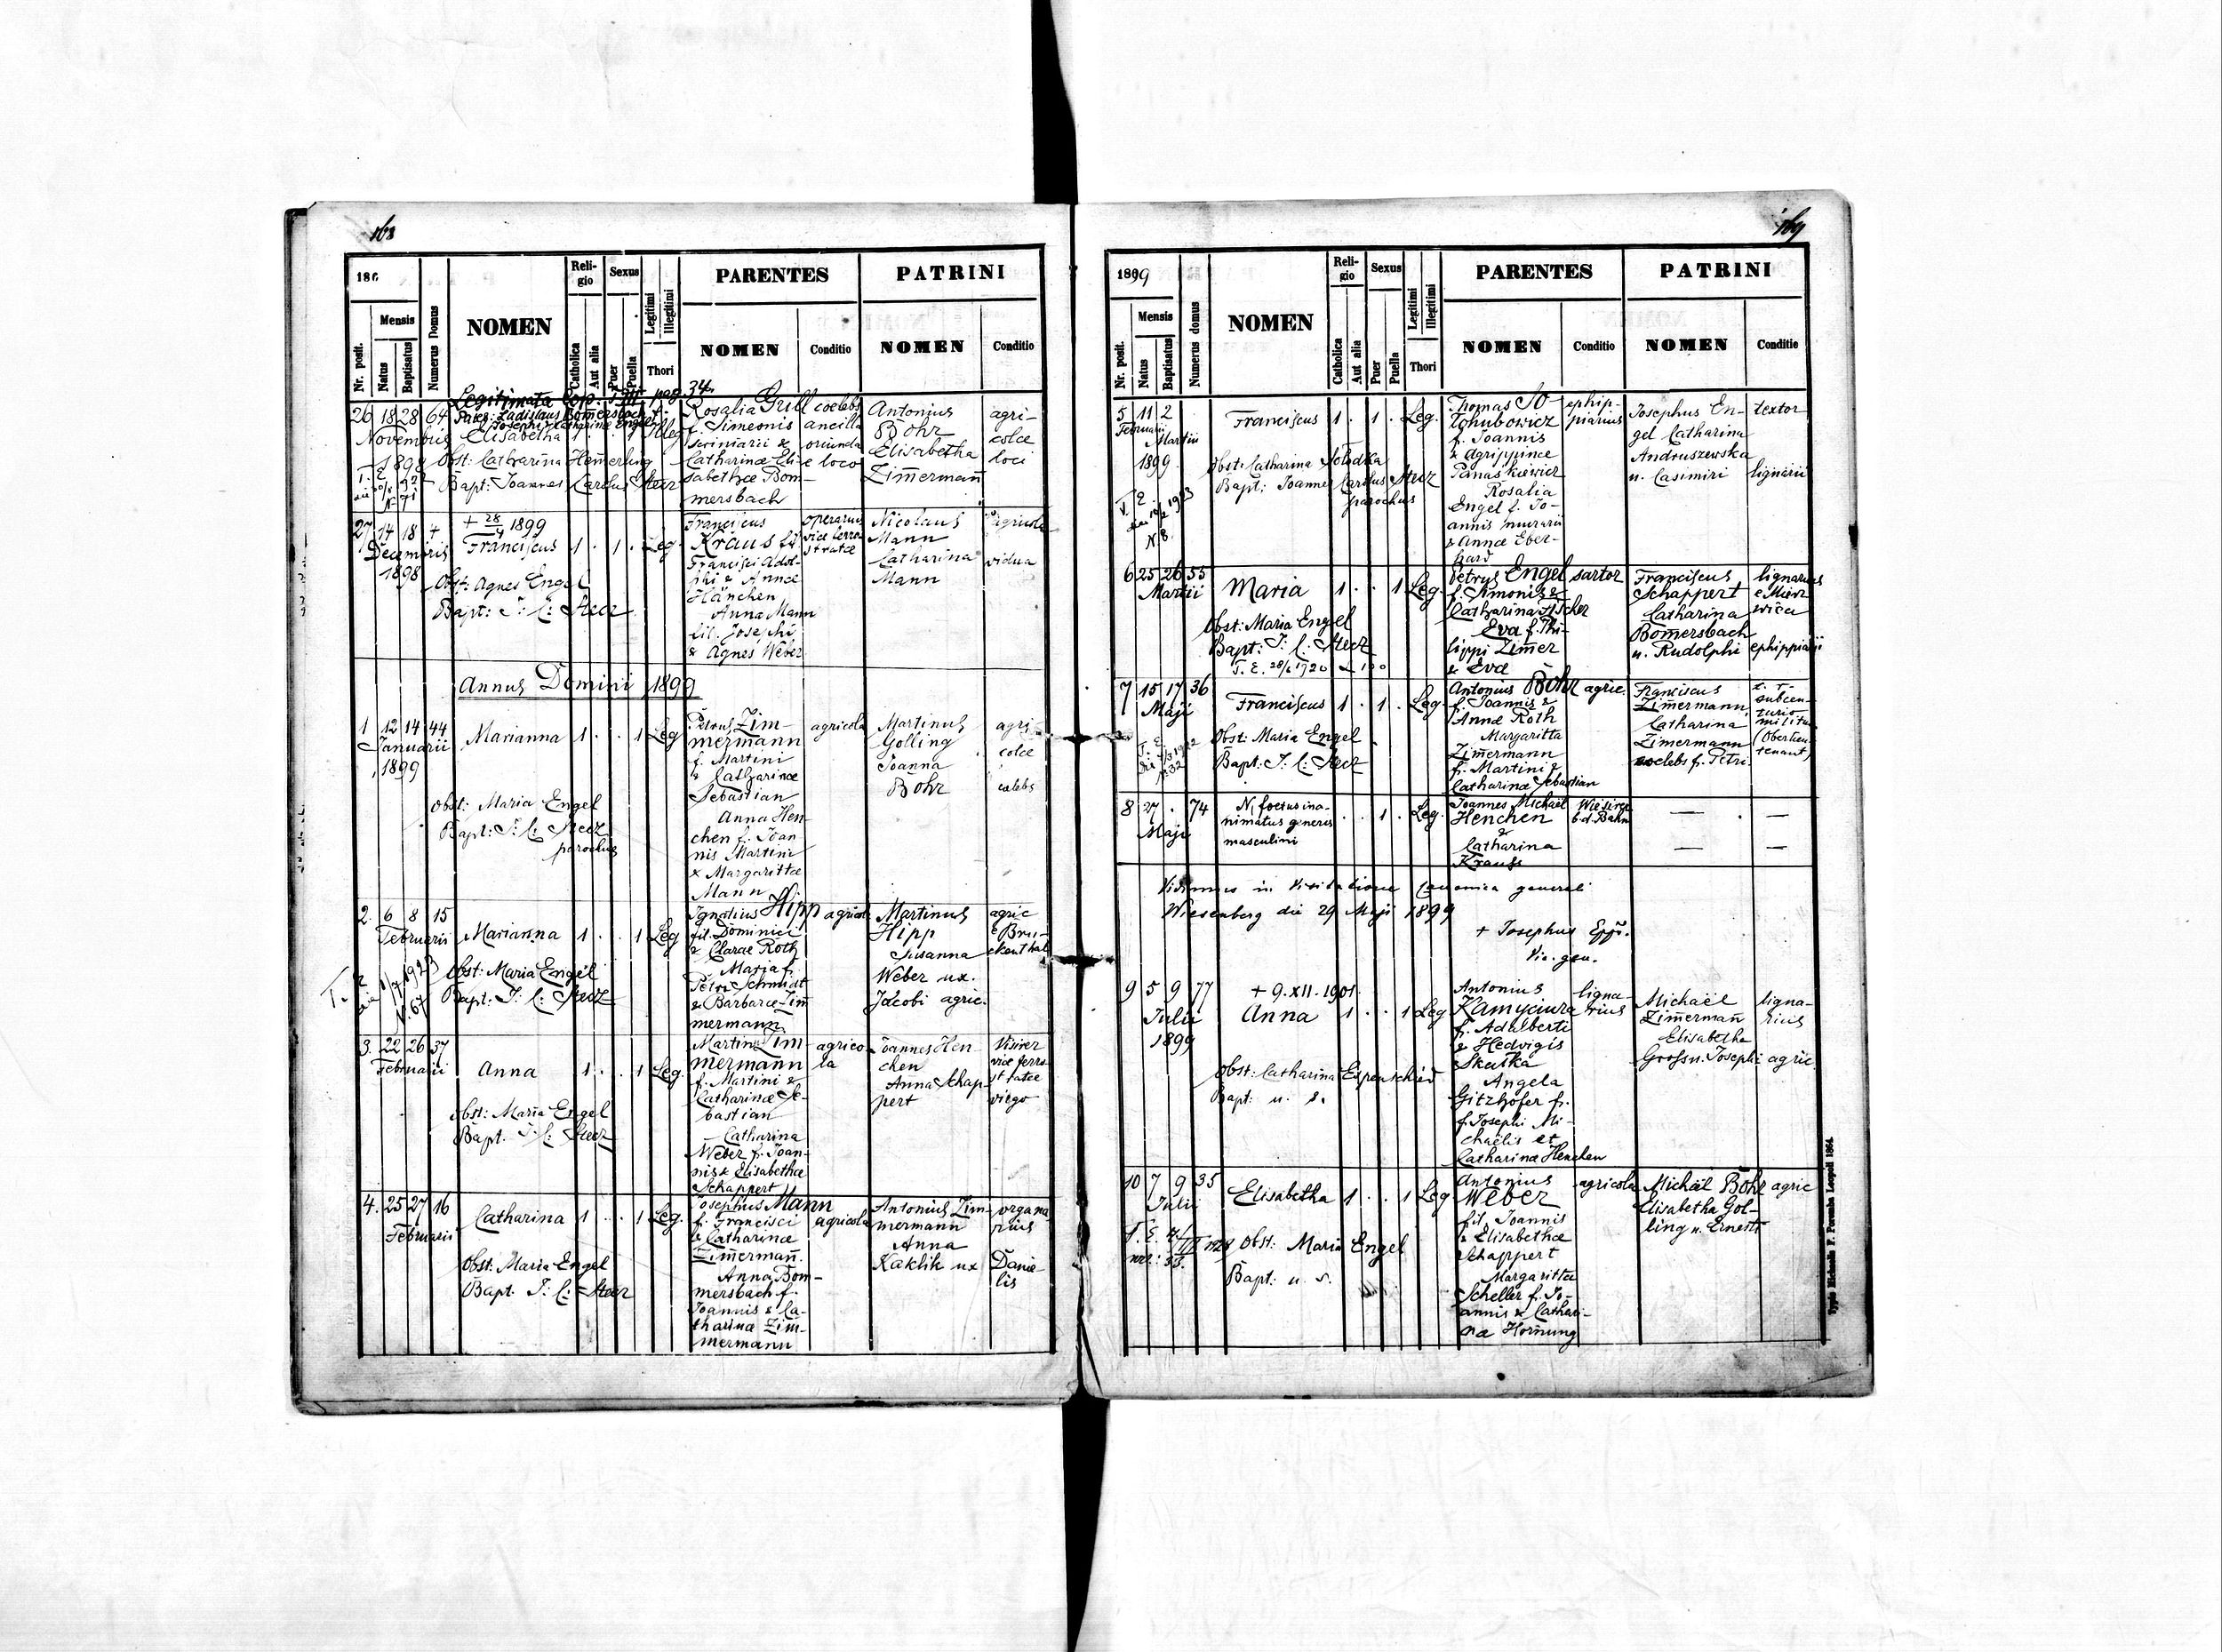 168
186
Mensis
Nr. posit.
Natus
Baptisatus
Numerus Domus
NOMEN
Religio
Catholica
Aut alia
Sexus
Puer
Puella
Legitimi
Illegitimi
Thori
PARENTES
NOMEN
Conditio
PATRINI
NOMEN
Conditio
Legitimata Cop. T. III pag. 34.
Pater: Ladislaus Bomersbach f.
Josephi & Catharinæ Engel
26 18 28 64
Novembris
1898
Elisabetha 1 . . 1 Illeg
Obst: Catharina Hemerling
Bapt: Joannes Carolus Stecz
Rosalia Grill
f. Simeonis
scriniarii &
Catharinæ Eli-
sabethæ Bom-
mersbach
coelebs
ancilla
oriunda
e loco
Antonius
Bohr
Elisabetha
Zimermann
agri-
colæ
loci
27 14 18 +
Decembris
1898
+ 28/4 1899
Franciscus 1 . 1 . Leg.
Obst: Agnes Engel
Bapt: J: C: Stecz
Franciscus
Kraus
Francisci Adol-
phi & Annæ
Hänchen
Anna Mann
fil. Josephi
& Agnes Weber
operarius
viæ ferro
stratæ
Nicolaus
Mann
Catharina
Mann
agricola
vidua
Annus Domini 1899
1 12 14 44
Januarii
1899
Marianna 1 . . 1 Leg
Obst: Maria Engel
Bapt: J: C: Stecz
parochus
Petrus Zim-
mermann
f. Martini
& Catharinæ
Sebastian
Anna Hen-
chen f. Joan-
nis Martini
& Margarittæ
Mann
agricola
Martinus
Golling
Joanna
Bohr
agri-
colæ
cælebs
2. 6 8 15
Februarii
Marianna 1 . . 1 Leg
Obst: Maria Engel
Bapt: J: C: Stecz
Ignatius Hipp
fil. Dominici
& Clarae Roth
Maria f.
Petri Schmidt
& Barbaræ Zim
mermann
agricol.
Martinus
Hipp
Susanna
Weber ux.
Jacobi agric.
agric
e Bru-
ckenthal
3. 22 26 37
Februarii
Anna 1 . . 1 Leg.
Obst: Maria Engel
Bapt. J: C: Stecz
Martinus Zim
mermann
f. Martini &
Catharinæ Se-
bastian
Catharina
Weber f. Joan-
nis & Elisabethæ
Schappert
agrico-
la
Joannes Hen-
chen
Anna Schap-
pert
Visirer
viæ ferro
stratæ
virgo
4. 25 27 16
Februarii
Catharina 1 . . 1 Leg.
Obst: Maria Engel
Bapt. J: C: Stecz
Josephus Mann
f. Francisci
& Catharinæ
Zimermann.
Anna Bom-
mersbach f.
Joannis & Ca-
tharinæ Zim-
mermann
agricola
Antonius Zim-
mermann
Anna
Kaklik ux
organa
rius
Danie
lis
169
1899
Mensis
Nr. posit.
Natus
Baptisatus
Numerus domus
NOMEN
Religio
Catholica
Aut alia
Sexus
Puer
Puella
Legitimi
Illegitimi
Thori
PARENTES
NOMEN
Conditio
PATRINI
NOMEN
Conditio
5 11 2
Februarii
Martii
1899
Franciscus 1 . 1 . Leg.
Obst: Catharina Solodka
Bapt: Joannes Carolus Stecz
parochus
Thomas Jo-
f. Joannis
& Agrippinæ
Panaskiewicz
Rosalia
Engel f. Jo-
annis murarii
& Annæ Eber-
hard
ephip-
piarius
Josephus En-
gel Catharina
Andruszewska
u. Casimiri
textor
lignarii
6 25 26 55
Martii
Maria 1 . . 1 Leg.
Obst: Maria Engel
Bapt: J: C: Stecz
Petrus Engel
f. Simonis &
Catharina Ascher
Eva f. Phi-
lippi Zimmer
& Eva
sartor
Franciscus
Schappert
Catharina
Bomersbach
u. Rudolphi
lignarius
ephippiarii
7 15 17 36
Maji
Franciscus 1 . 1 . Leg.
Obst: Maria Engel
Bapt: J: C: Stecz
Antonius Bohr
f. Joannis &
Annæ Roth
Margaritta
Zimermann
f. Martini &
Catharinæ Sebastian
agric.
Franciscus
Zimermann
Catharina
Zimermann
coelebs f. Petri
subcen-
turio
militum
(Oberlieu-
tenant)
8 27 . 74
Maji
N. foetus ina-
nimatus generis
masculini
. . 1 . Leg.
Joannes Michael
Henchen
&
Catharina
Krauss
b. d. Bahn
Vidimus in Visitatione Canonica generali
Wiesenberg die 29 Maji 1899
+ Josephus Eppi.
Vic. gen.
9 5 9 77
Julii
1899
+ 9. XII. 1901
Anna 1 . . 1 Leg
Obst: Catharina Espenschied
Bapt: u. s.
Antonius
Kamyciura
f. Adalberti
& Hedvigis
Skutka
Angela
Gitzhofer f.
f. Josephi Mi-
chaëlis et
Catharinæ Henchen
ligna-
rius
Michaël
Zimermann
Elisabetha
Gross u. Josephi
ligna-
rius
agric
10 7 9 35
Julii
Elisabetha 1 . . 1 Leg
Obst: Maria Engel
Bapt: u. s.
Antonius
Weber
fil. Joannis
& Elisabethæ
Schappert
Margaritta
Scheller f. Jo-
annis & Cathari-
næ Hornung
agricola
Michaël Bohr
Elisabetha Gol-
ling u. Ernesti
agric
Typis Eichende F. Poremba Leopoli 1864.